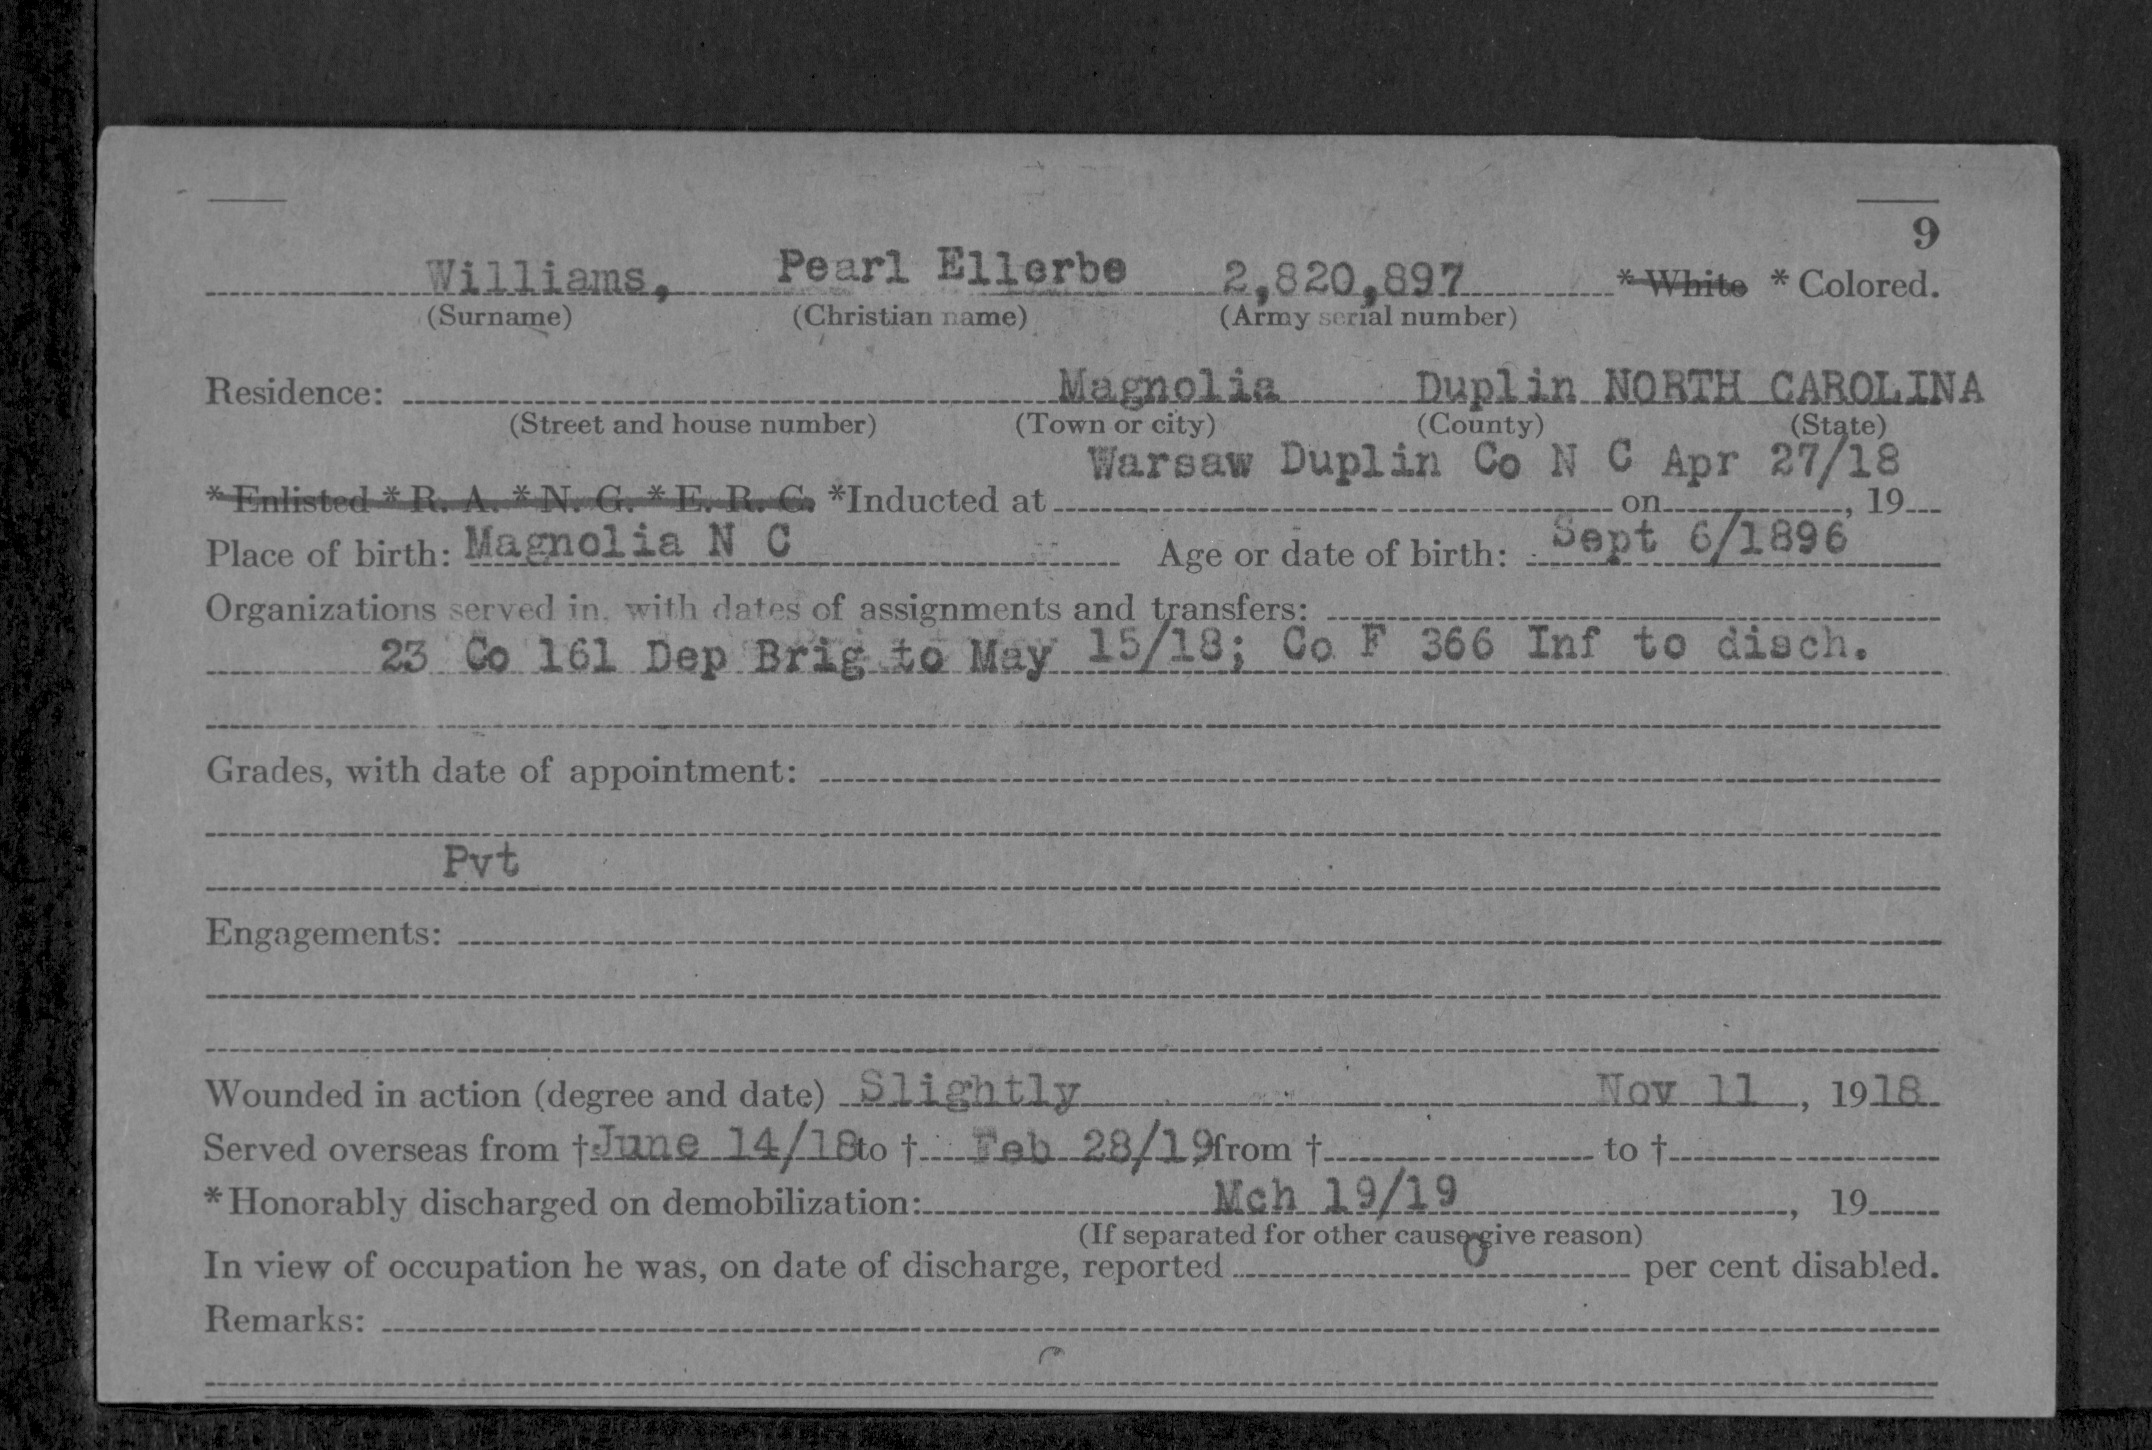 9
Williams, Pearl Ellerbe 2,820,897 * White * Colored.
(Surname) (Christian name) (Army serial number)
Residence: Magnolia Duplin NORTH CAROLINA
(Street and house number) (Town or city) (County) (State)
Warsaw Duplin Co N C Apr 27/18
* Enlisted * R. A. * N. G. * E. R. C. *Inducted at on , 19
Place of birth: Magnolia N C Age or date of birth: Sept 6/1896
Organizations served in, with dates of assignments and transfers:
23 Co 161 Dep Brig to May 15/18; Co F 366 Inf to disch.
Grades, with date of appointment:
Pvt
Engagements:
Wounded in action (degree and date) Slightly Nov 11 , 1918
Served overseas from † June 14/18 to † Feb 28/19 from † to †
* Honorably discharged on demobilization: Mch 19/19 , 19
(If separated for other cause give reason)
In view of occupation he was, on date of discharge, reported 0 per cent disabled.
Remarks: